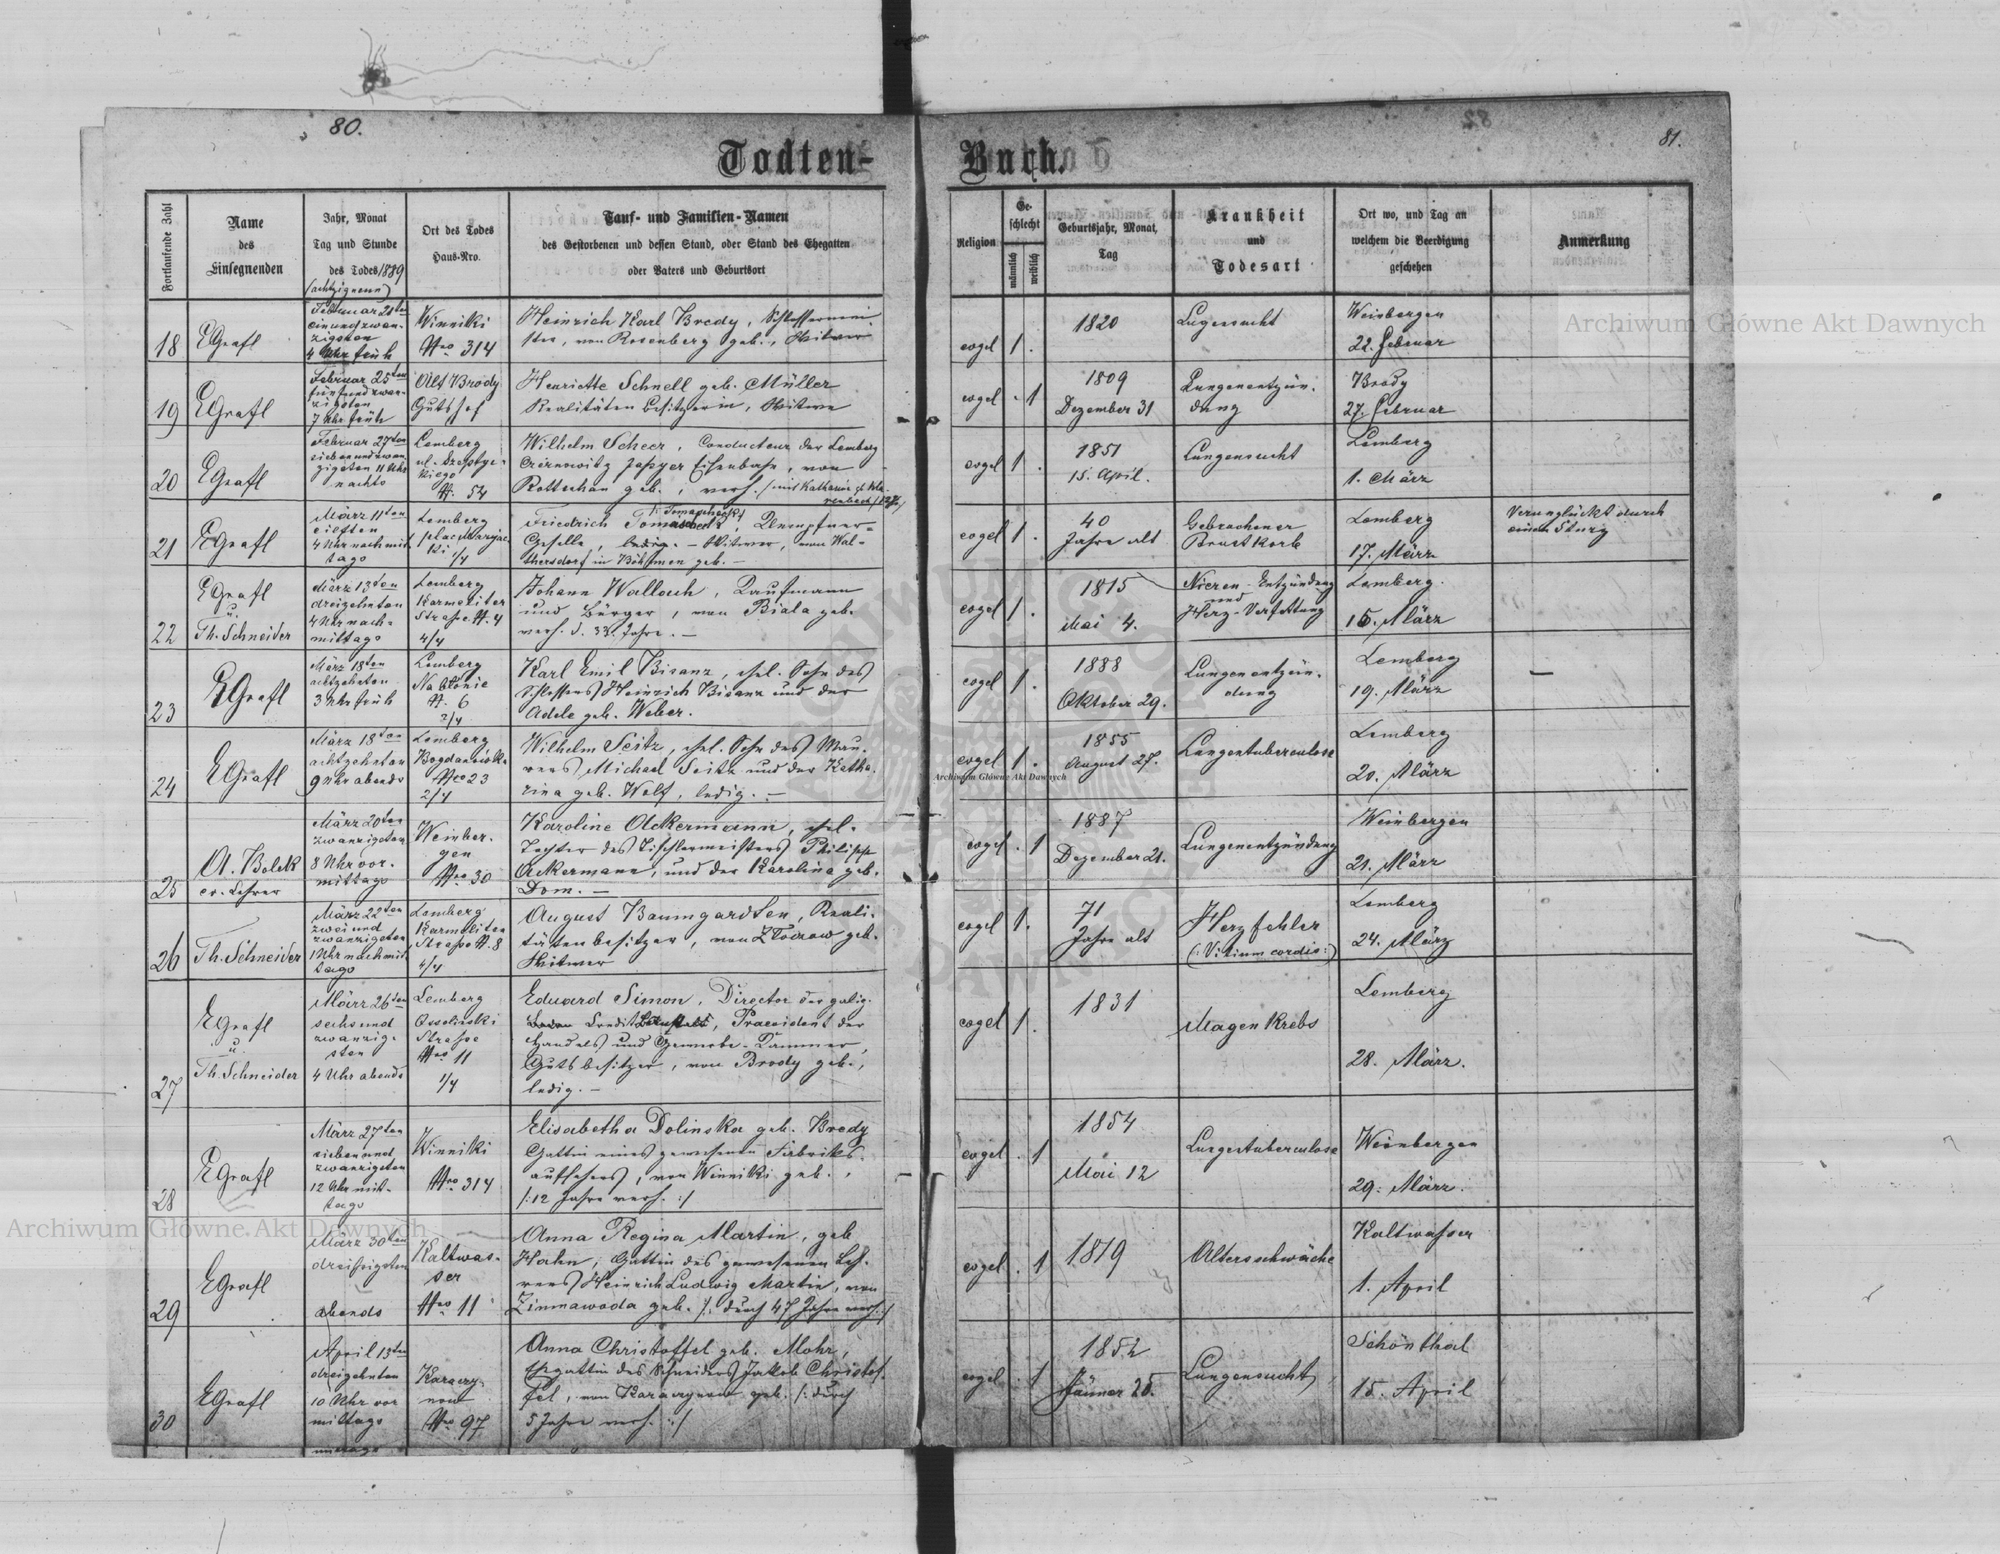 80.
81.
Todten-
Buch.
Fortlaufende Zahl
Name
des
Einsegnenden
Jahr, Monat
Tag und Stunde
des Todes 1889
(achtzigneun)
Ort des Todes
Haus-Nro.
Tauf- und Familien-Namen
des Gestorbenen und dessen Stand, oder Stand des Ehegatten
oder Vaters und Geburtsort
Religion
Ge-
schlecht
männlich
weiblich
Geburtsjahr, Monat,
Tag
Krankheit
und
Todesart
Ort wo, und Tag an
welchem die Beerdigung
geschehen
Anmerkung
18
EGrafl
Februar 21ten
einundzwan-
zigsten
4 Uhr früh
Winniki
Nro 314
Heinrich Karl Bredy, Schlossermei-
ster, von Rosenberg geb., Witwer
evgel
1.
1820
Lugensucht
Weinbergen
22. Februar
19
EGrafl
Februar 25ten
fünfundzwan-
zigsten
7 Uhr früh
Alt Brody
Gutshof
Henriette Schnell geb. Müller
Realitäten besitzerin, Witwe
evgel
.1
1809
Dezember 31
Lungenentzün-
dung
Brody
27. Februar
20
EGrafl
Februar 27ten
siebenundzwan-
zigsten 11 Uhr
nachts
Lemberg
N. 54
Wilhelm Scheer, Conducteur der Lemberg
Czernowitz Jassyer Eisenbahn, von
geb., verh. (mit Katharina
evgel
1.
1851
15. April.
Lungensucht
Lemberg
1. März
21
EGrafl
März 11ten
eilften
4 Uhr nachmit
tags
Lemberg
1/4
Friedrich
Geselle, ledig. - Witwer, von Wal-
thersdorf in Böhmen geb. -
evgel
1.
40
Jahre alt
Gebrochener
Brustkorb
Lemberg
17. März
Verunglückt durch
einen Sturz
22
EGrafl
u.
Th. Schneider
März 13ten
dreizehnten
4 Uhr nach-
mittags
Lemberg
Karmeliter
Strasse N. 4
4/4
Johann Wallach, Kaufmann
und Bürger, von Biala geb.
verh. d. 33. Jahre. -
evgel
1.
1815
Mai 4.
Nieren - Entzündung
und
Herz-Verfettung
Lemberg.
15. März
23
EGrafl
März 18ten
achtzehnten
3 Uhr früh
Lemberg
Na błonie
N. 6
2/4
Karl Emil Bisanz, ehel. Sohn des
Schlossers Heinrich Bisanz und der
Adele geb. Weber.
evgel
1.
1888
Oktober 29.
Lungenentzün-
dung
Lemberg
19. März
—
24
EGrafl
März 18ten
achtzehnten
9 Uhr abends
Lemberg
Bogdanówka
Nro 23
2/4
Wilhelm Seitz, ehel. Sohn des Mau-
rers Michael Seitz und der Katha-
rina geb. Wolf, ledig. -
evgel
1.
1855
August 27.
Lungentuberculose
Lemberg
20. März
25
A. Bolek
ev. Lehrer
März 20ten
zwanzigsten
8 Uhr vor-
mittags
Weinber-
gen
Nro 30
Karoline Ackermann, ehel.
Tochter des Tischlermeisters Philipp
Ackermann, und der Karolina geb.
Dom. -
evgel
.1
1887
Dezember 21.
Lungenentzündung
Weinbergen
21. März
26
Th. Schneider
März 22ten
zwei und
zwanzigsten
1 Uhr nachmit-
tags
Lemberg
Karmeliten
Strasse N. 8
4/4
August Baumgardten, Reali-
tätenbesitzer, von Złoczow geb.
Witwer
evgel
1.
71
Jahre alt
Herzfehler
(:Vitium cordis:)
Lemberg
24. März
27
EGrafl
u.
Th. Schneider
März 26ten
sechs und
zwanzig-
sten
4 Uhr abends
Lemberg
Ossolinski
Strasse
Nro 11
1/4
Eduard Simon, Director der galiz.
Boden Credit Anstalt, Praesident der
Handels und Gewerbe-Kammer,
Gutsbesitzer, von Brody geb.,
ledig. -
evgel
1.
1831
Magen Krebs
Lemberg
28. März.
28
EGrafl
März 27ten
sieben und
zwanzigsten
12 Uhr mit-
tags
Winniki
Nro 314
Elisabetha Dolinska geb. Bredy
Gattin eines gewesenen Fabriks-
aufsehers, von Winniki geb.,
/:12 Jahre verh.:/
evgel
.1
1854
Mai 12
Lungentuberculose
Weinbergen
29. März.
29
EGrafl
März 30ten
dreissigsten
abends
Kaltwas-
ser
Nro 11
Anna Regina Martin, geb
Hahn, Gattin des gewesenen Leh-
rers Heinrich Ludwig Martin, von
Zimnawoda geb. /: durch 47 Jahre verh.:/
evgel
.1
1819
Altersschwäche
Kaltwasser
1. April
30
EGrafl
April 13ten
dreizehnten
10 Uhr vor
mittags
Karaczy-
now
Nro 97
Anna Christoffel geb. Mohr,
Ehegattin des Schneiders Jakob Christof-
fel, von Karaczynow geb. /: durch
5 Jahre verh.:/
evgel
.1
1852
Jänner 25.
Lungensucht
Schönthal
15. April
Archiwum Główne Akt Dawnych
Archiwum Główne Akt Dawnych
Archiwum Główne Akt Dawnych